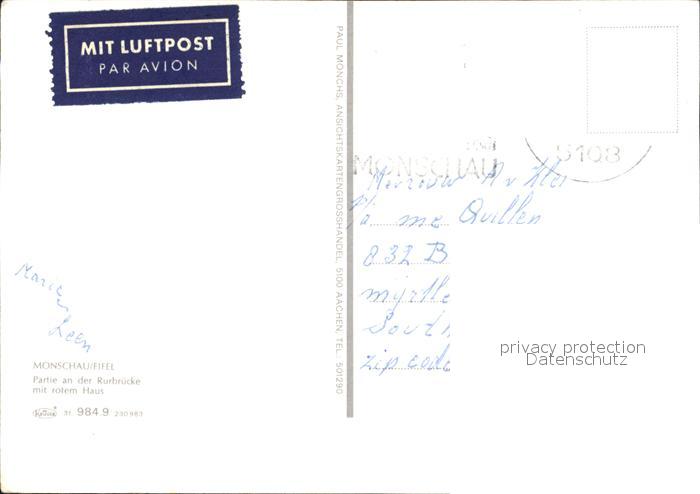 MIT LUFTPOST
PAR AVION
PAUL MONCHS, ANSICHTSKARTENGROSSHANDEL, 5100 AACHEN, TEL. 501290
MONSCHAU
5108
me Quillen
832 B
myrtle
South
zip code
Marie
Leen
MONSCHAU/EIFEL
Partie an der Rurbrücke
mit rotem Haus
Krüger
31 984.9 230983
privacy protection
Datenschutz